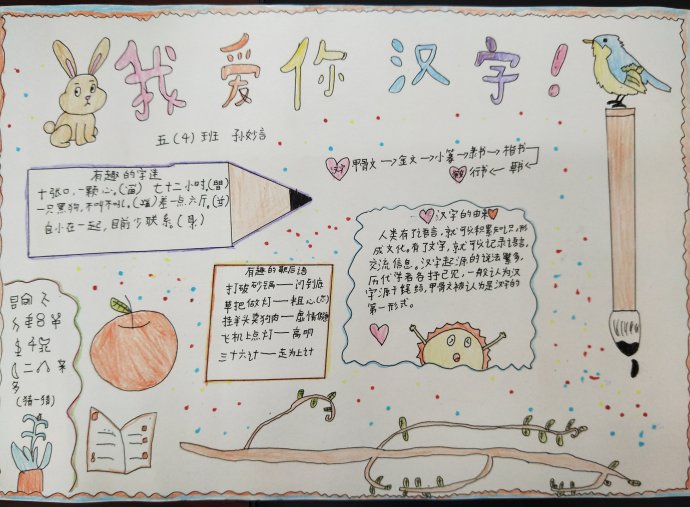 我爱你汉字!
五(4)班 孙妙言
有趣的字谜
十张口,一颗心。(思) 七十二小时。(晶)
一只黑狗,不叫不吼。(默)差一点六斤。(兵)
自小在一起,目前少联系(省)
甲骨文→金文→小篆→隶书→楷书
行书←草书
有趣的歇后语
打破砂锅——问到底
草把做灯——粗心(芯)
挂羊头卖狗肉——虚情假意
飞机上点灯——高明
三十六计——走为上计
汉字的由来
人类有了语言,就可以积累知识,形
成文化。有了文字,就可以记录语言,
交流信息。汉字起源的说法繁多,
历代学者各持己见,一般认为汉
字源于结绳,甲骨文被认为是汉字的
第一形式。
(猜一猜)